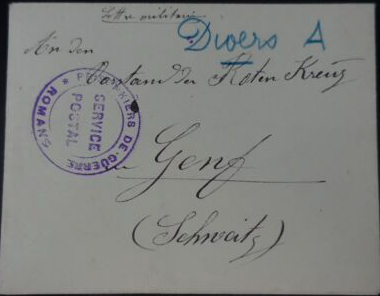 Lettre militaire
Divers A
An den
Vorstand des Roten Kreuz
PRISONNIERS DE GUERRE * ROMANS *
SERVICE
POSTAL
Genf
(Schweitz)